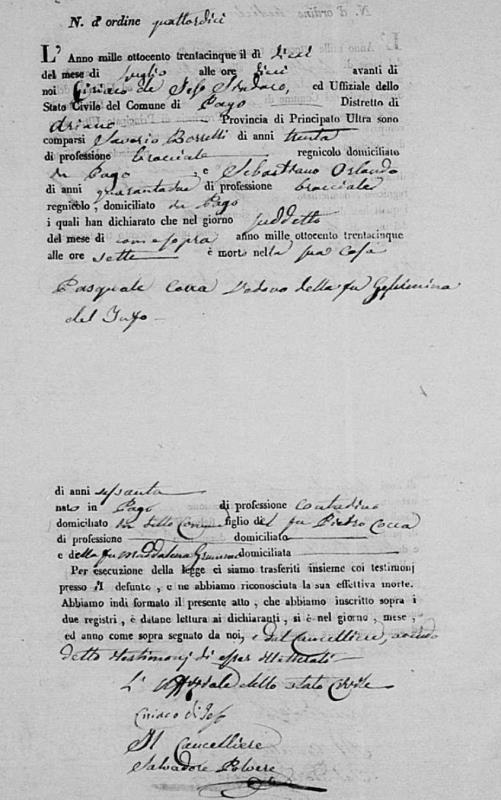 N. d'ordine quattordici
L'Anno mille ottocento trentacinque il dì dieci
del mese di luglio alle ore dieci avanti di
noi Ciriaco de Jeso Sindaco, ed Uffiziale dello
Stato Civile del Comune di Pago Distretto di
Ariano Provincia di Principato Ultra sono
comparsi Saverio Borrelli di anni trenta
di professione bracciale regnicolo domiciliato
in Pago e Sebastiano Orlando
di anni quarantadue di professione bracciale
regnicolo, domiciliato in Pago
i quali han dichiarato che nel giorno suddetto
del mese di come sopra anno mille ottocento trentacinque
alle ore sette è morto nella sua casa
Pasquale Cocca Vedovo della fu
del
di anni sessanta
nato in Pago di professione contadino
domiciliato in detto Comune figlio del fu Pietro Cocca
di professione domiciliato
e della fu Maddalena domiciliata
Per esecuzione della legge ci siamo trasferiti insieme coi testimonj
presso il defunto, e ne abbiamo riconosciuta la sua effettiva morte.
Abbiamo indi formato il presente atto, che abbiamo inscritto sopra i
due registri, e datane lettura ai dichiaranti, si è nel giorno, mese,
ed anno come sopra segnato da noi, e del Cancelliere, avendo
detto testimonj di esser illetterati
L'Uffiziale dello stato Civile
Ciriaco di Jeso
Il Cancelliere
Salvadore Polvere